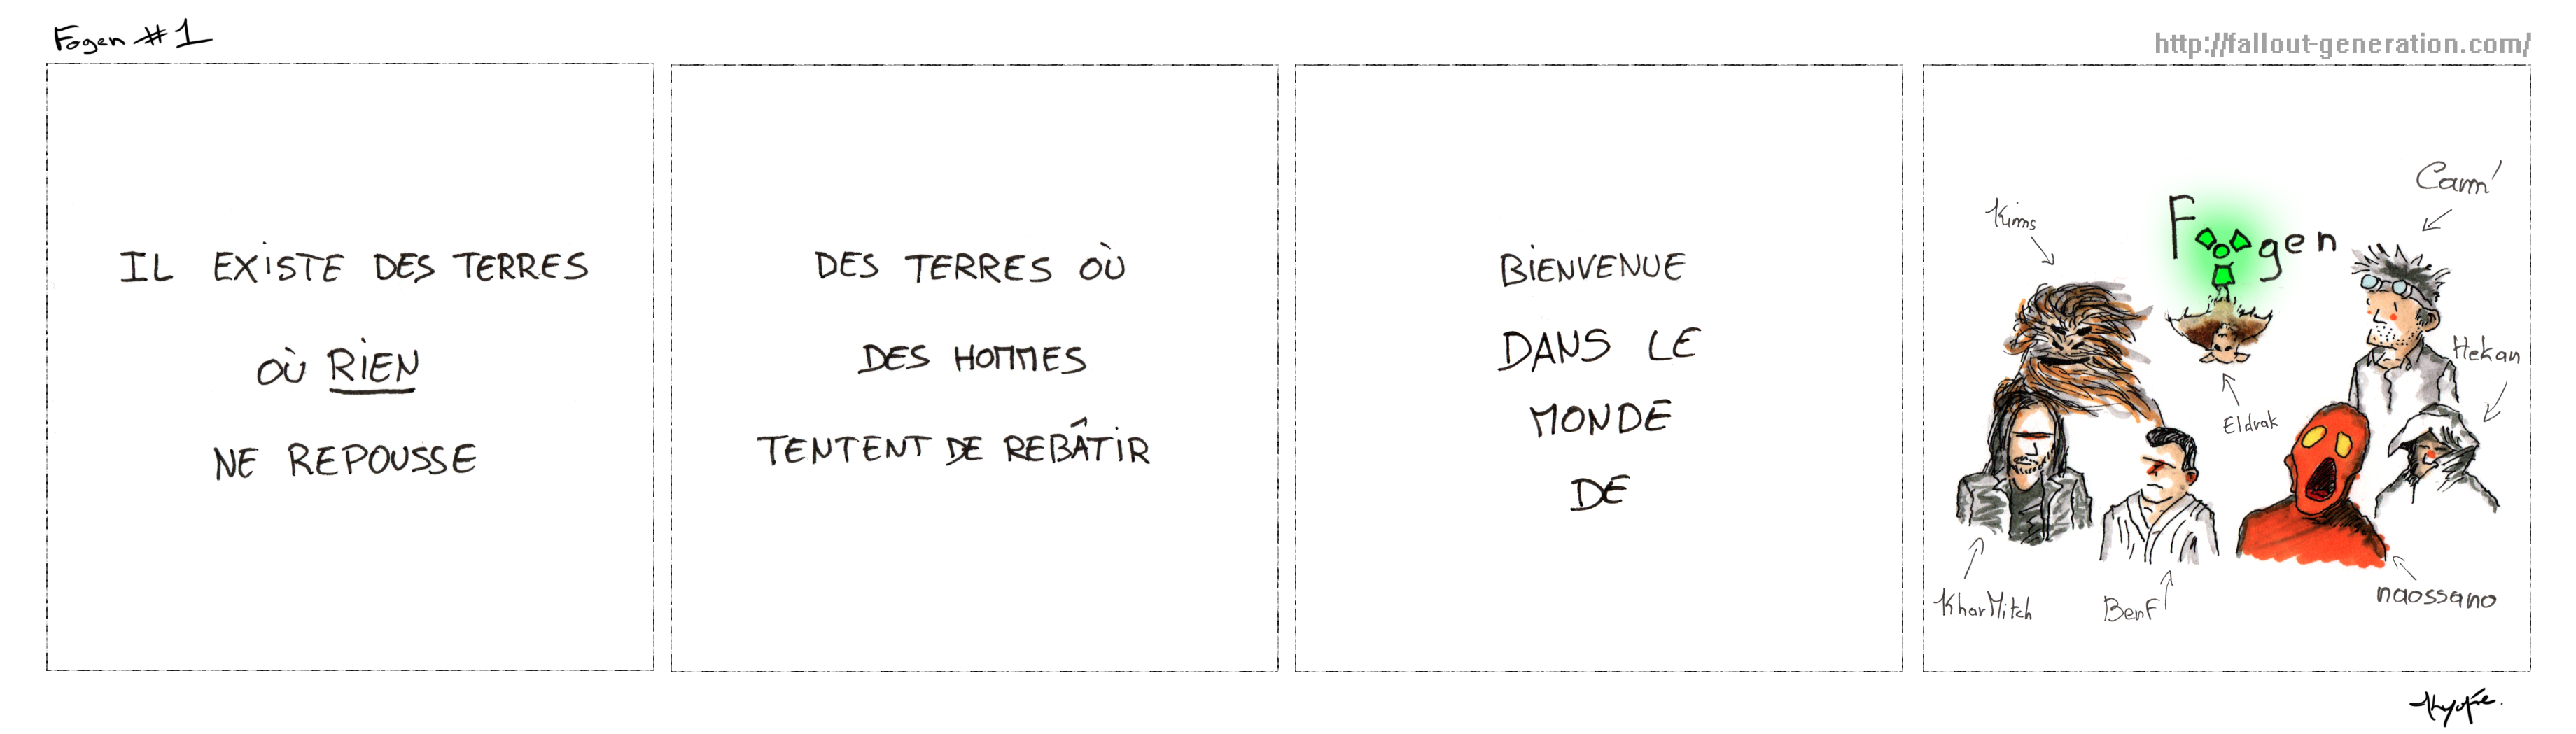 Fogen #1
http://fallout-generation.com/
IL EXISTE DES TERRES
OÙ RIEN
NE REPOUSSE
DES TERRES OÙ
DES HOMMES
TENTENT DE REBÂTIR
BIENVENUE
DANS LE
MONDE
DE
Fogen
Kims
Cam'
Hekan
Eldrak
KharMitch
BenF
naossano